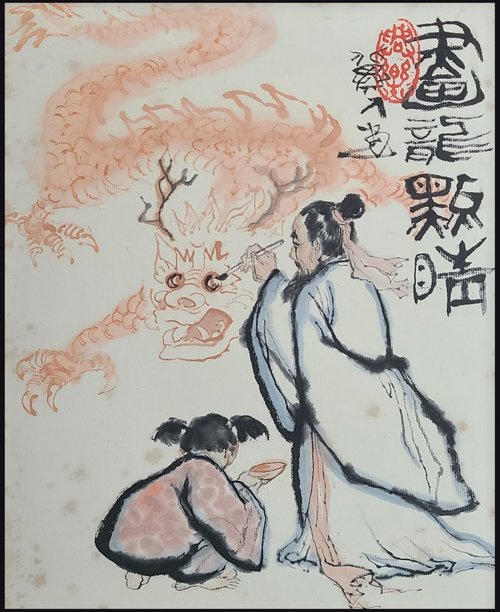 畫龍點睛